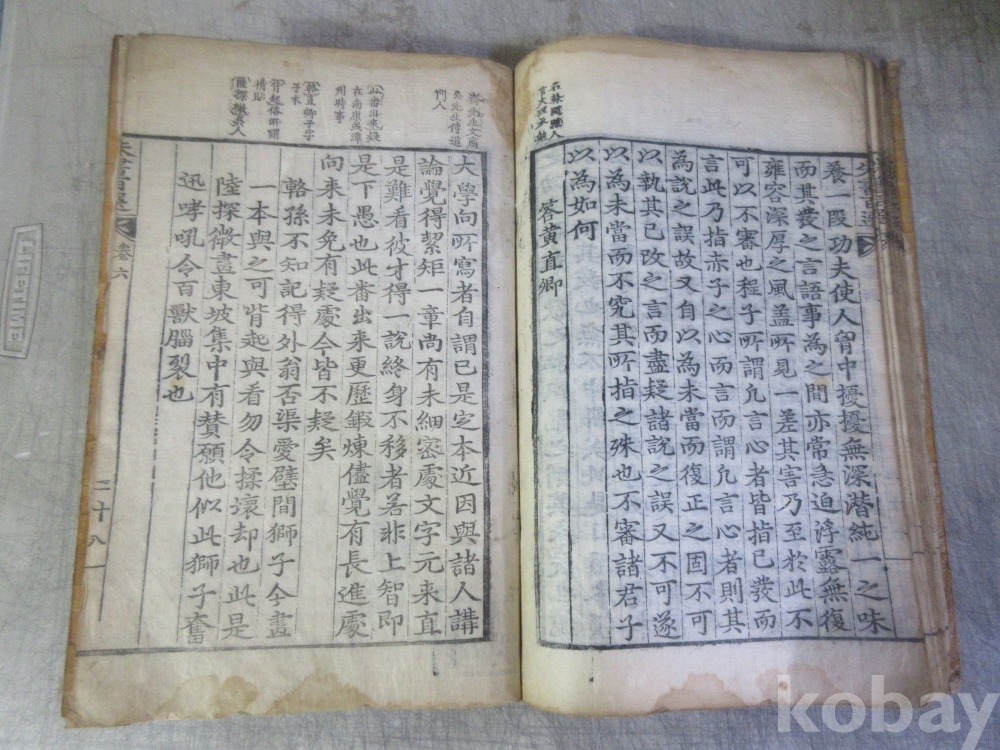 養一段功夫使人胷中擾擾無深潛純一之味
而其發之言語事為之間亦常急迫浮露無復
雍容深厚之風盖所見一差其害乃至於此不
可以不審也程子所謂凢言心者皆指已發而
言此乃指赤子之心而言而謂凢言心者則其
為說之誤故又自以為未當而復正之固不可
以執其已改之言而盡疑諸說之誤又不可遂
以為未當而不究其所指之殊也不審諸君子
以為如何
答黄直卿
大學向所寫者自謂已是定本近因與諸人講
論覺得絜矩一章尚有未細密處文字元来直
是難看彼才得一說終身不移者若非上智即
是下愚也此番出来更歷鍛煉儘覺有長進處
向来未免有疑處今皆不疑矣
輅孫不知記得外翁否渠愛壁間獅子今畫
一本與之可背起與看勿令揉壞却也此是
陸探微畫東坡集中有賛願他似此獅子奮
迅哮吼令百獸腦裂也
朱書百選
卷六
二十八
kobay